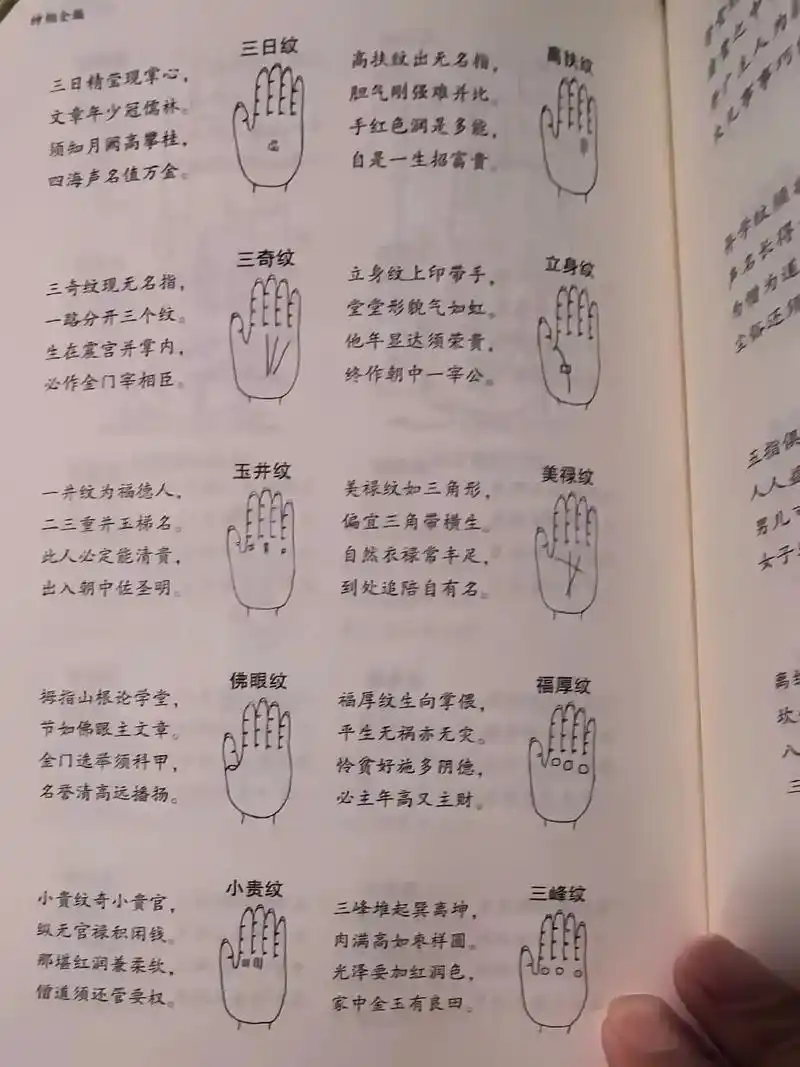 神相全编
三日纹
三日精莹现掌心，
文章年少冠儒林。
须知月阙高攀桂，
四海声名值万金。
高扶纹
高扶纹出无名指，
胆气刚强难并比。
手红色润是多能，
自是一生招富贵。
三奇纹
三奇纹现无名指，
一路分开三个纹。
生在震宫并掌内，
必作金门宰相臣。
立身纹
立身纹上印带手，
堂堂形貌气如虹。
他年显达须荣贵，
终作朝中一宰公。
玉井纹
一井纹为福德人，
二三重井玉梯名。
此人必定能清贵，
出入朝中佐圣明。
美禄纹
美禄纹如三角形，
偏宜三角带横生。
自然衣禄常丰足，
到处追陪自有名。
佛眼纹
拇指山根论学堂，
节如佛眼主文章。
金门选举须科甲，
名誉清高远播扬。
福厚纹
福厚纹生向掌偎，
平生无祸亦无灾。
怜贫好施多阴德，
必主年高又主财。
小贵纹
小贵纹奇小贵官，
纵无官禄积闲钱。
那堪红润兼柔软，
僧道须还管要权。
三峰纹
三峰堆起巽离坤，
肉满高如枣样圆。
光泽要加红润色，
家中金玉有良田。
声名长得
五指俱
人人
男儿
女子
八
三